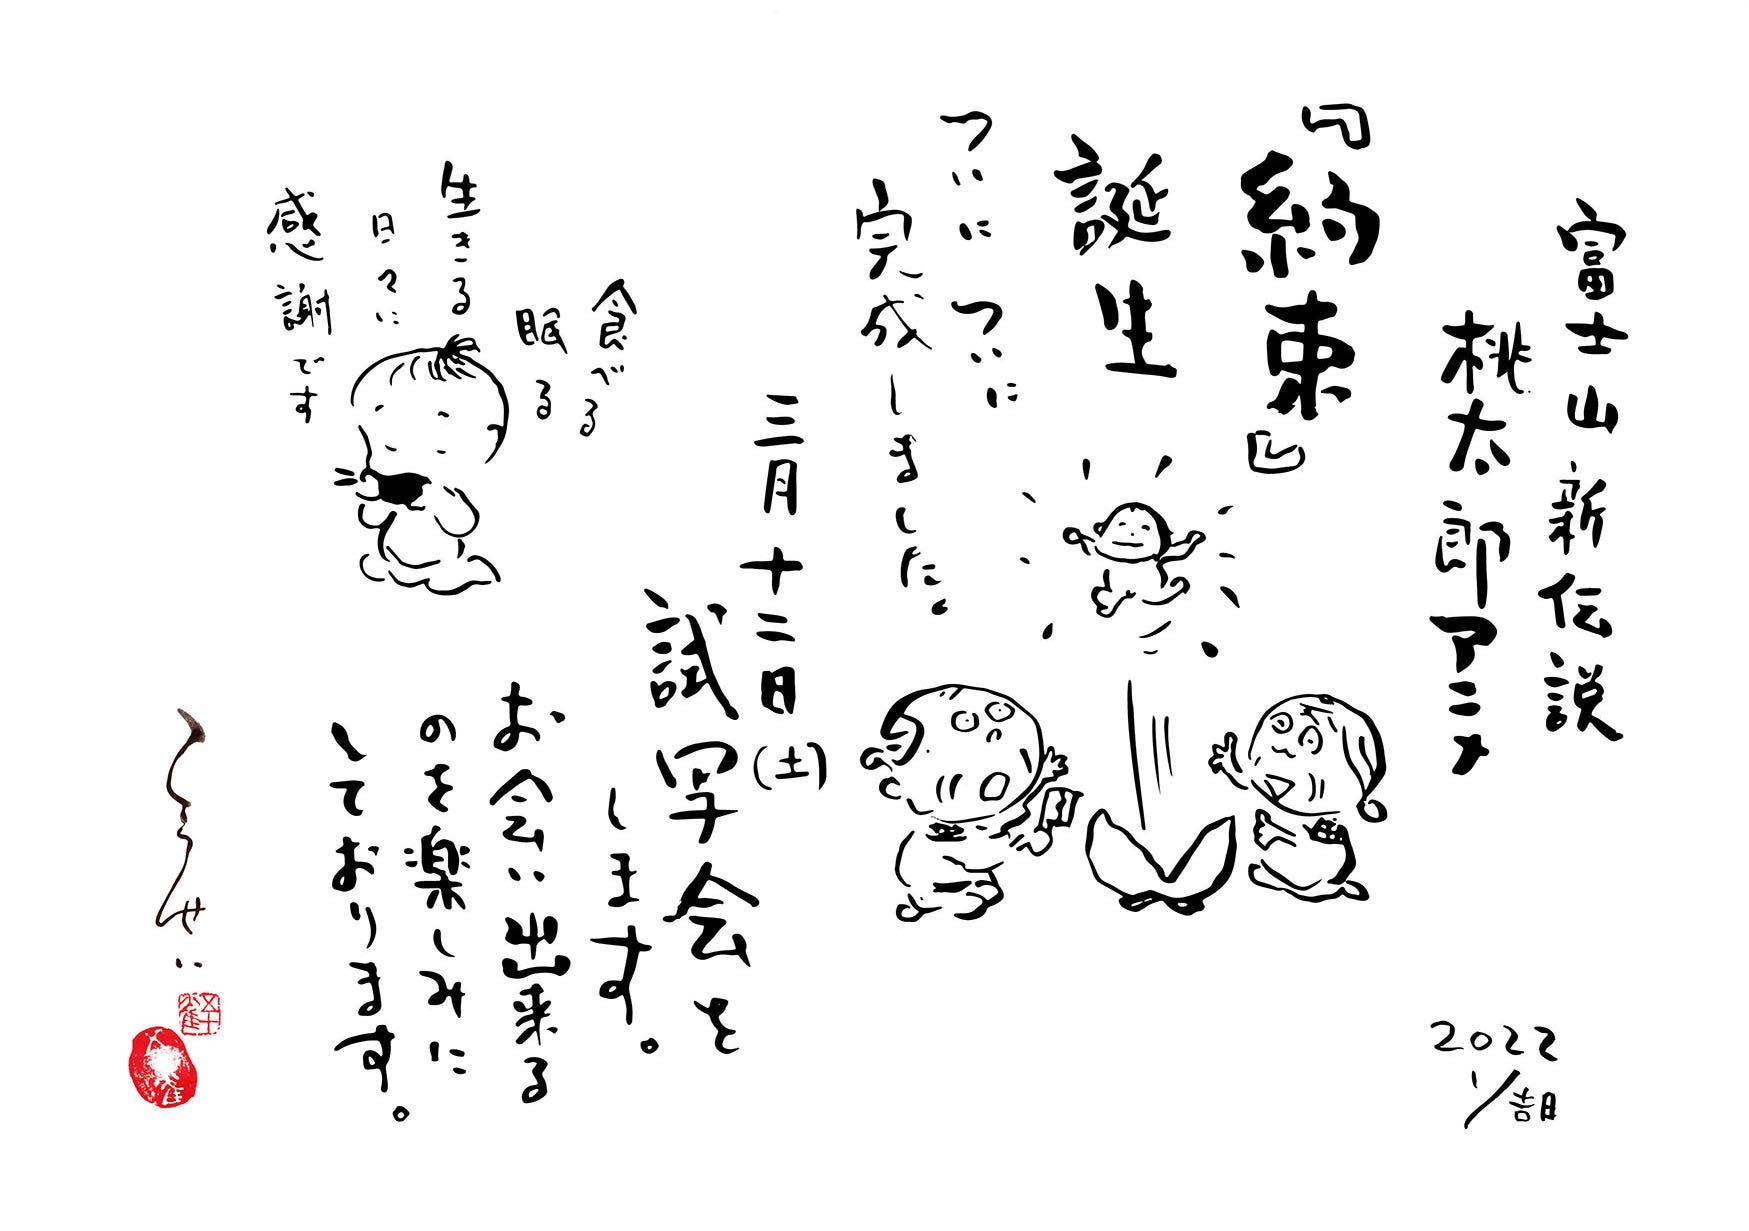 富士山新伝説
桃太郎アニメ
『約束』
誕生
ついに ついに
完成しました。
三月十二日(土)
試写会を
します。
お会い出来る
のを楽しみに
しております。
食べる
眠る
生きる
日々に
感謝です
2022
1/吉日